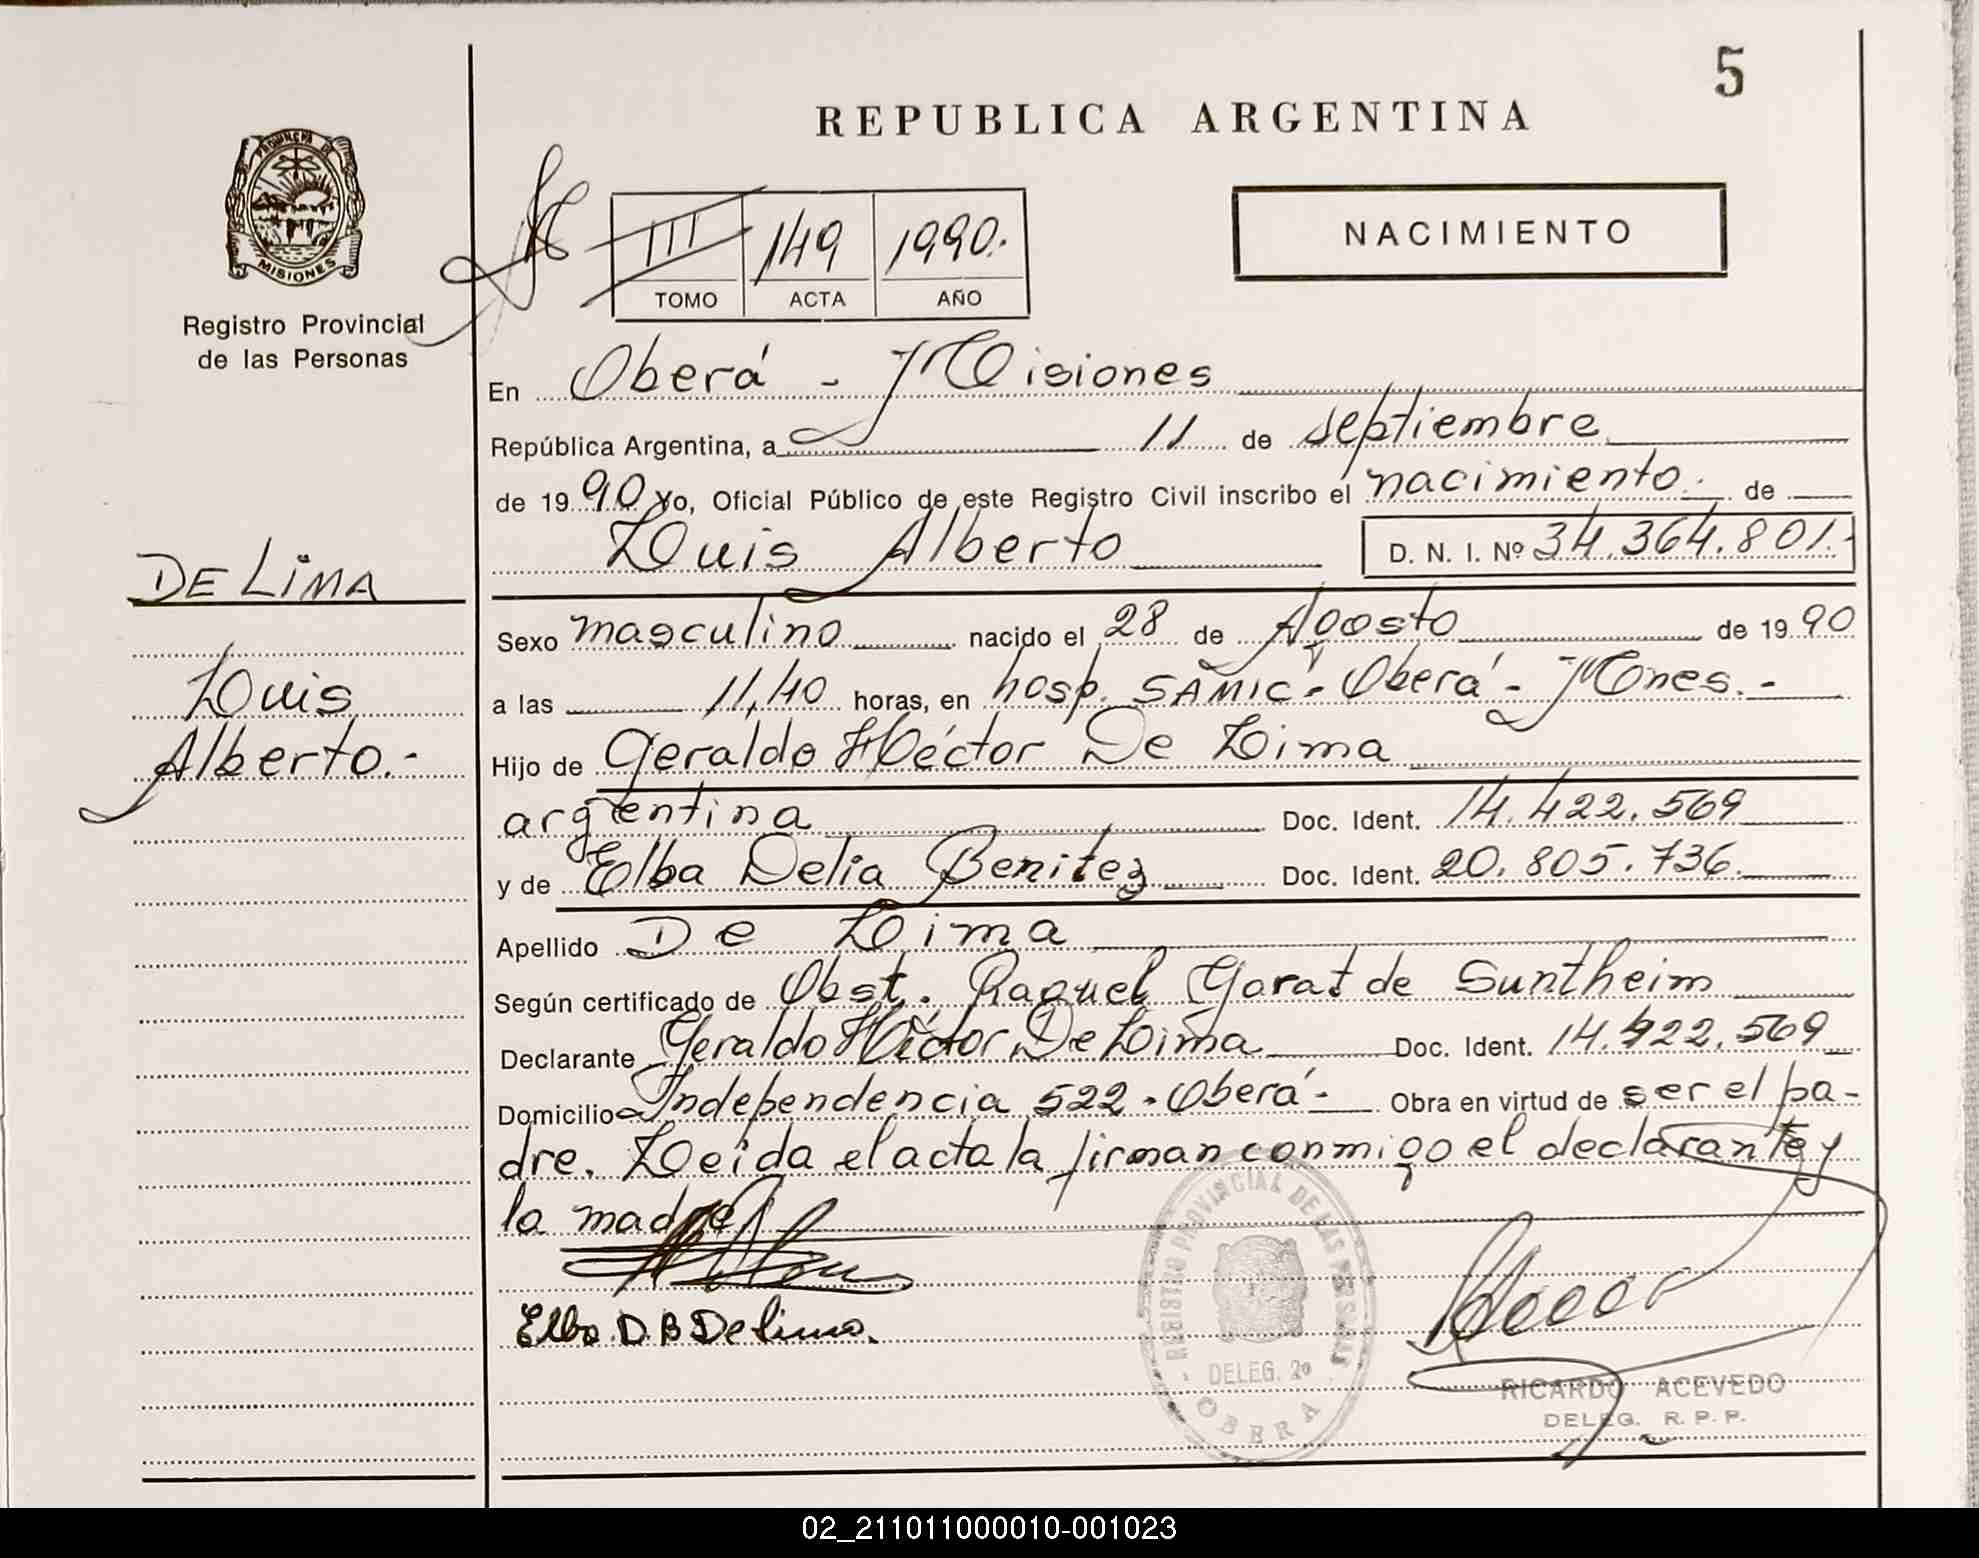 5
REPUBLICA ARGENTINA
PROVINCIA DE
MISIONES
Registro Provincial
de las Personas
III 149 1990.
TOMO ACTA AÑO
NACIMIENTO
En Oberá - Misiones
República Argentina, a 11 de septiembre
de 1990 Yo, Oficial Público de este Registro Civil inscribo el nacimiento. de
Luis Alberto D. N. I. Nº 34.364.801.-
DE LIMA
Luis
Alberto.-
Sexo masculino nacido el 28 de Agosto de 1990
a las 11,40 horas, en hosp. SAMIC - Oberá - Mnes.-
Hijo de Geraldo Héctor De Lima
argentina Doc. Ident. 14.422.569
y de Elba Delia Benitez Doc. Ident. 20.805.736.
Apellido De Lima
Según certificado de Obst. Raquel Garat de Suntheim
Declarante Geraldo Héctor De Lima Doc. Ident. 14.422.569
Domicilio Independencia 522 - Oberá - Obra en virtud de ser el pa-
dre. Leída el acta la firman conmigo el declarante y
la madre
Elba D. B De Lima.
REGISTRO PROVINCIAL DE LAS PERSONAS
DELEG. 2º
OBERA
RICARDO ACEVEDO
DELEG. R. P. P.
02_211011000010-001023